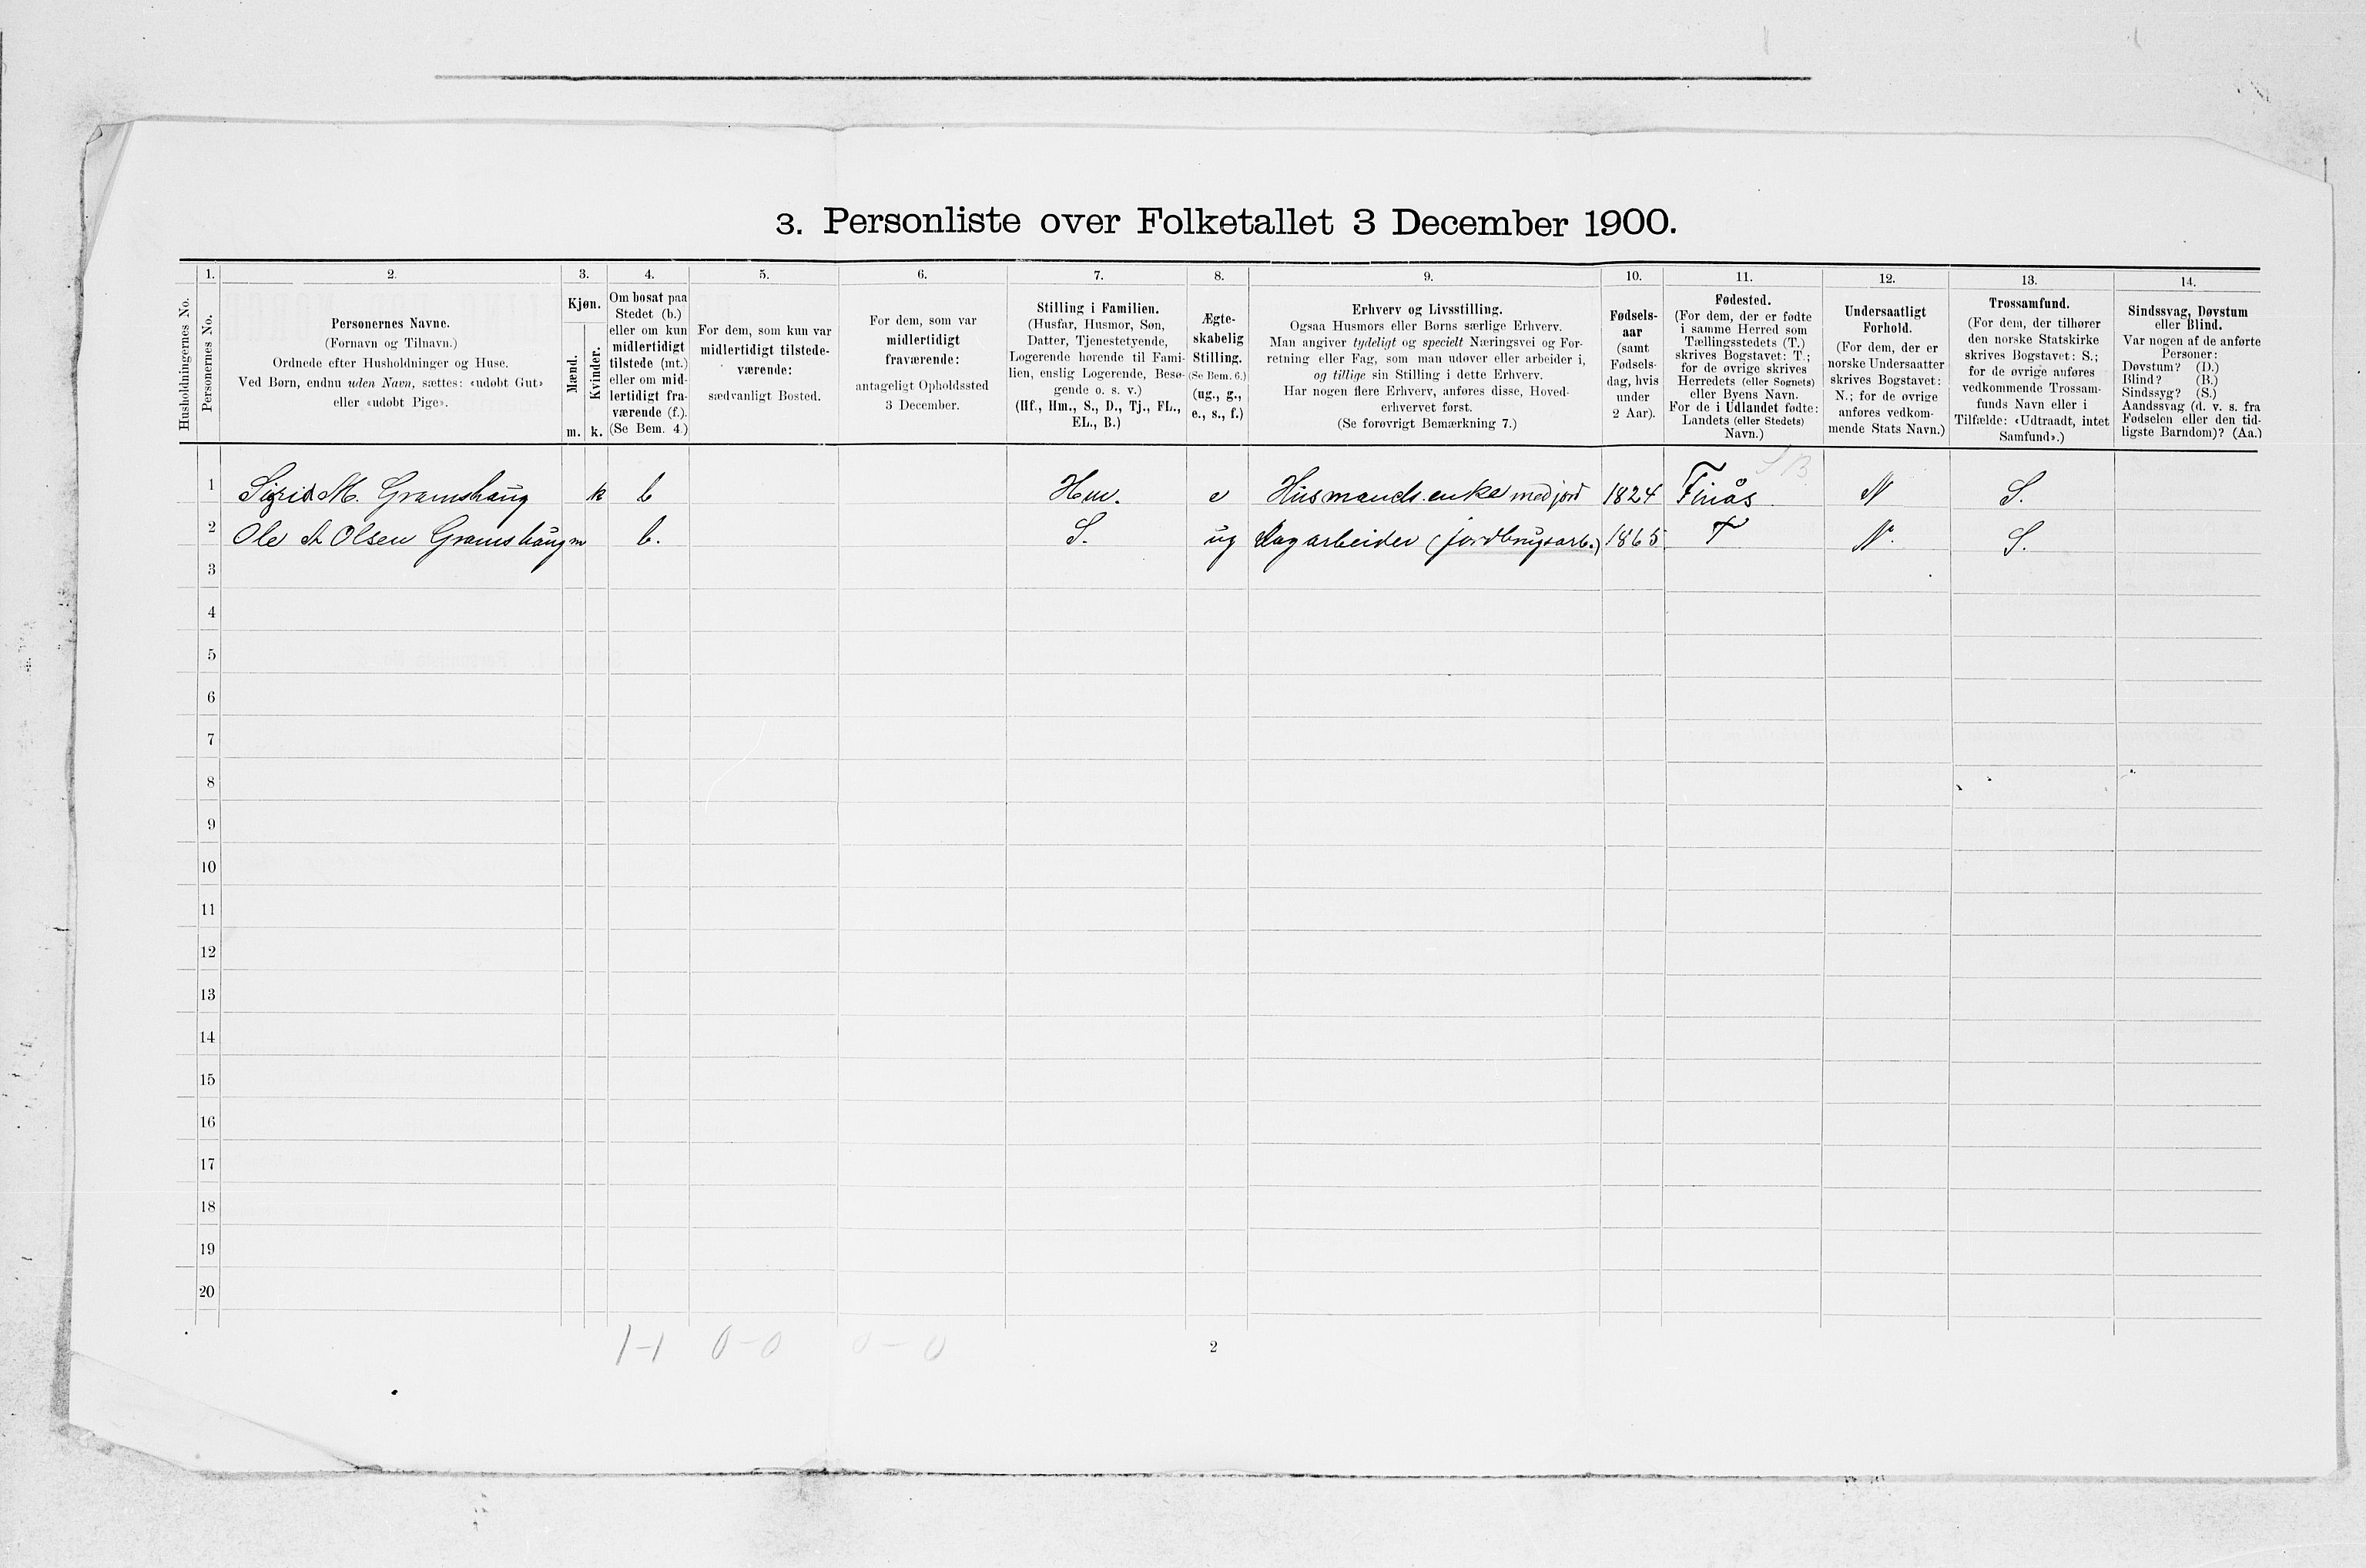 3. Personliste over Folketallet 3 December 1900.
Husholdningernes No.
1.
Personernes No.
2.
Personernes Navne.
(Fornavn og Tilnavn.)
Ordnede efter Husholdninger og Huse.
Ved Børn, endnu uden Navn, sættes: «udøbt Gut»
eller «udøbt Pige».
3.
Kjøn.
Mænd.
m.
Kvinder.
k.
4.
Om bosat paa
Stedet (b.)
eller om kun
midlertidigt
tilstede (mt.)
eller om mid-
lertidigt fra-
værende (f.).
(Se Bem. 4.)
5.
For dem, som kun var
midlertidigt tilstede-
værende:
sædvanligt Bosted.
6.
For dem, som var
midlertidigt
fraværende:
antageligt Opholdssted
3 December.
7.
Stilling i Familien.
(Husfar, Husmor, Søn,
Datter, Tjenestetyende,
Logerende hørende til Fami-
lien, enslig Logerende, Besø-
gende o. s. v.)
(Hf., Hm., S., D., Tj., FL.,
EL., B.)
8.
Ægte-
skabelig
Stilling.
(Se Bem. 6.)
(ug., g.,
e., s., f.)
9.
Erhverv og Livsstilling.
Ogsaa Husmors eller Børns særlige Erhverv.
Man angiver tydeligt og specielt Næringsvei og For-
retning eller Fag, som man udøver eller arbeider i,
og tillige sin Stilling i dette Erhverv.
Har nogen flere Erhverv, anføres disse, Hoved-
erhvervet først.
(Se forøvrigt Bemærkning 7.)
10.
Fødsels-
aar
(samt
Fødsels-
dag, hvis
under
2 Aar).
11.
Fødested.
(For dem, der er fødte
i samme Herred som
Tællingsstedets (T.)
skrives Bogstavet: T.;
for de øvrige skrives
Herredets (eller Sognets)
eller Byens Navn.
For de i Udlandet fødte:
Landets (eller Stedets)
Navn.)
12.
Undersaatligt
Forhold.
(For dem, der er
norske Undersaatter
skrives Bogstavet:
N.; for de øvrige
anføres vedkom-
mende Stats Navn.)
13.
Trossamfund.
(For dem, der tilhører
den norske Statskirke
skrives Bogstavet: S.;
for de øvrige anføres
vedkommende Trossam-
funds Navn eller i
Tilfælde: «Udtraadt, intet
Samfund».)
14.
Sindssvag, Døvstum
eller Blind.
Var nogen af de anførte
Personer:
Døvstum? (D.)
Blind? (B.)
Sindssyg? (S.)
Aandssvag (d. v. s. fra
Fødselen eller den tid-
ligste Barndom)? (Aa.)
1 Sigrid M. Gramshaug k b Hm. e Husmands enke med jord 1824 Finås N S.
2 Ole Olsen Gramshaug m b. S. ug Dagarbeider (jordbrugsarb.) 1865 T N. S.
3
4
5
6
7
8
9
10
11
12
13
14
15
16
17
18
19
20
1-1 0-0 0-0
2